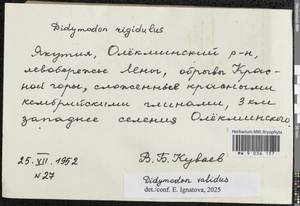 Didymodon rigidulus
Якутия, Олёкминский р-н,
левобережье Лены, обрывы Крас-
ной горы, сложенные красными
кембрийскими глинами, 3 км
западнее селения Олёкминского
25.VII.1952
N27
В. Б. Куваев
Herbarium MW, Bryophyta
MW 9 036 157
Didymodon validus
det./conf. E. Ignatova, 2025